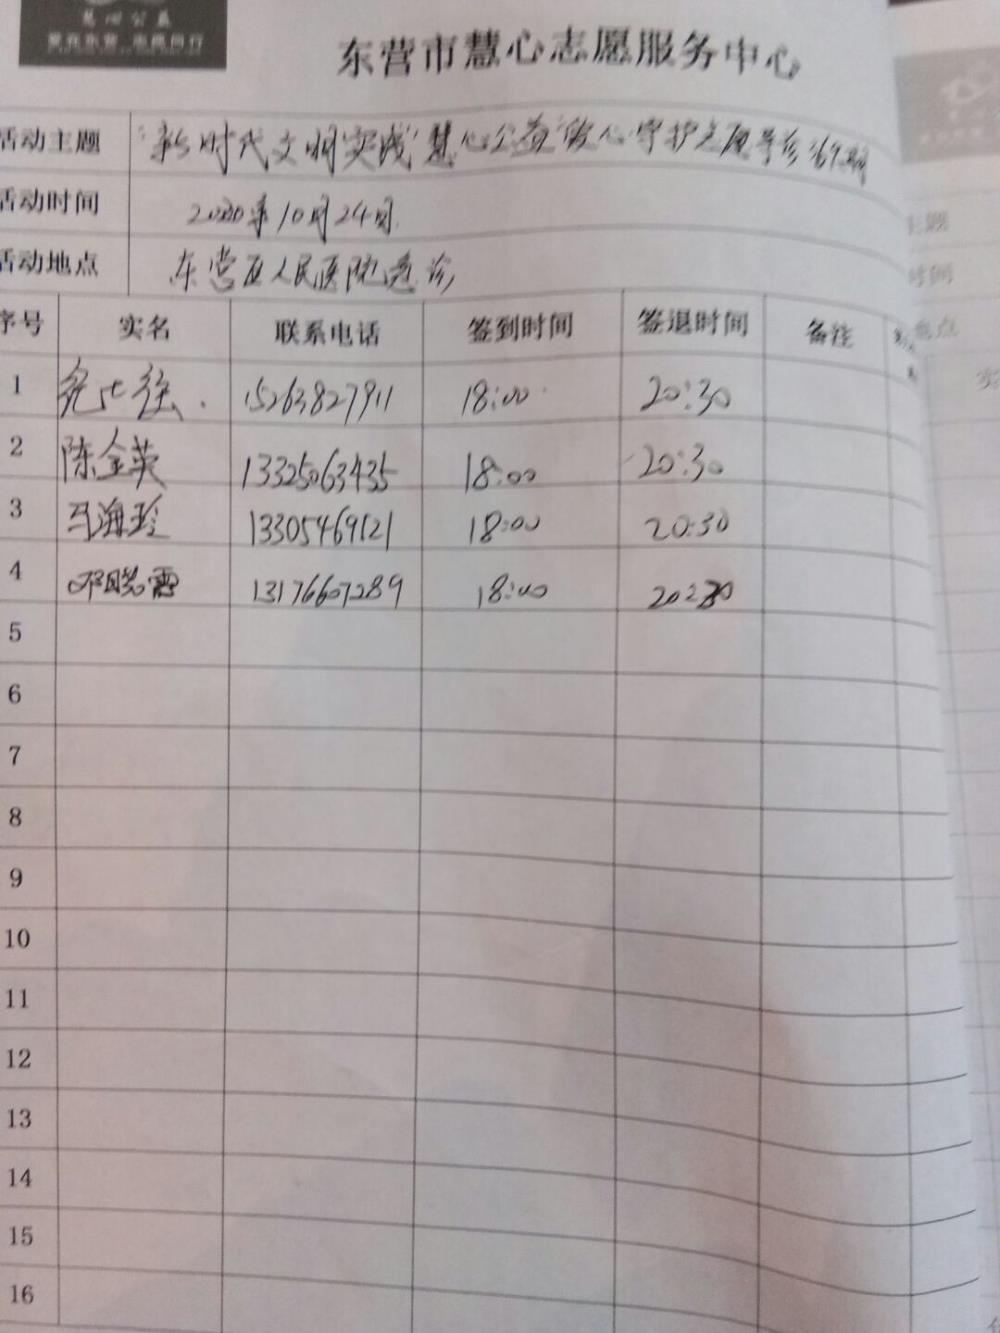 慧心公益
东营市慧心志愿服务中心
活动主题 "新时代文明实践"慧心公益"爱心守护志愿导诊169期
活动时间 2020年10月24日
活动地点 东营区人民医院急诊
序号 实名 联系电话 签到时间 签退时间 备注
1 15263827911 18:00 20:30
2 陈金英 13325063435 18:00 20:30
3 马海玲 13305469121 18:00 20:30
4 邓晓霞 13176607289 18:00 20:30
5
6
7
8
9
10
11
12
13
14
15
16
主题
时间
地点
实